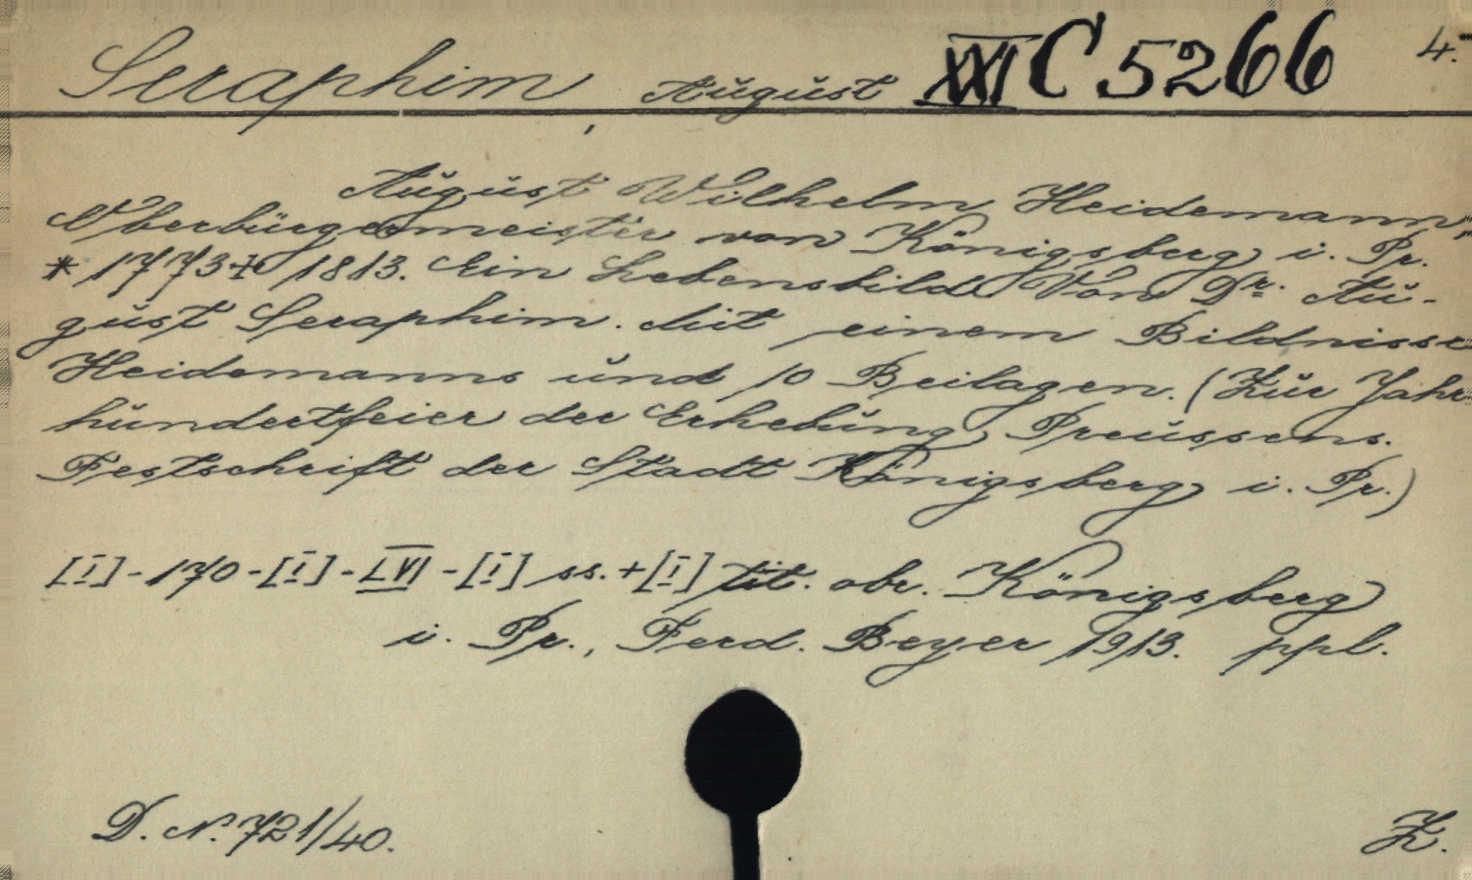 Seraphim, August XXI C 5266 4.-
August Wilhelm Heidemann,
Oberbürgermeister von Königsberg i. Pr.
* 1773 + 1813. Ein Lebensbild Von Dr. Au-
gust Seraphim. Mit einem Bildnisse
Heidemanns und 10 Beilagen. (Zur Jahr-
hundertfeier der Erhebung Preussens.
Festschrift der Stadt Königsberg i. Pr.)
[I]-170-[I]-LVI-[I] ss. + [I] tit. obr. Königsberg
i. Pr., Ferd. Beyer 1913. ppl.
D. N. 721/40. Z.